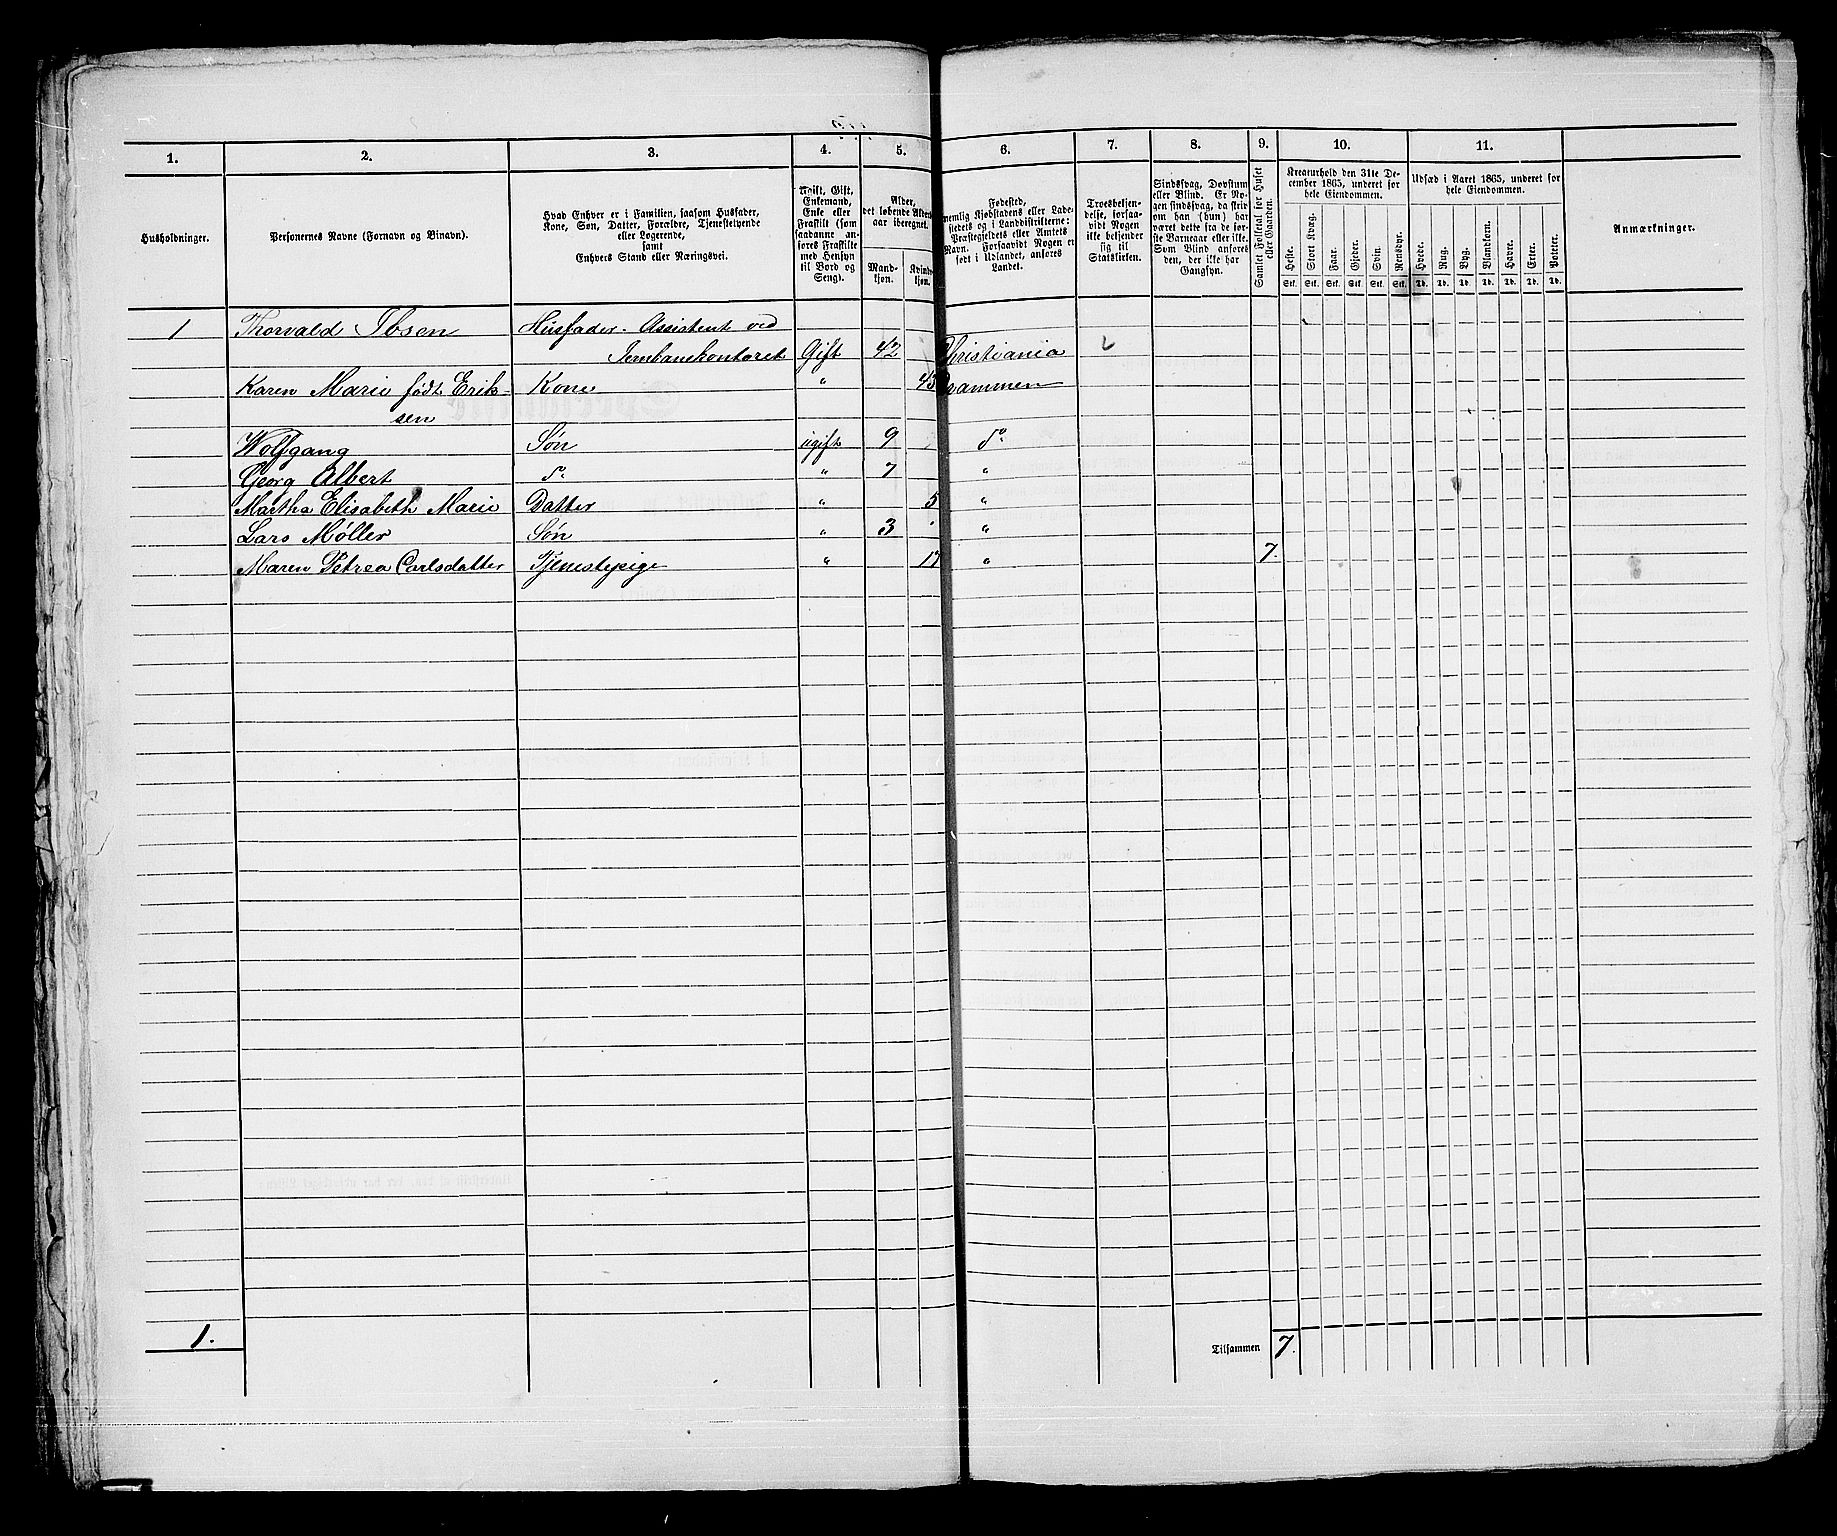 1. 2. 3. 4. 5. 6. 7. 8. 9. 10. 11.
Husholdninger.
Personernes Navne (Fornavn og Binavn).
Hvad Enhver er i Familien, saasom Husfader,
Kone, Søn, Datter, Forældre, Tjenestetyende
eller Logerende,
samt
Enhvers Stand eller Næringsvei.
Ugift, Gift,
Enkemand,
Enke eller
Fraskilt (som
saadanne an-
føres Fraskilte
med Hensyn
til Bord og
Seng).
Alder,
det løbende Alders-
aar iberegnet.
Mand-
kjøn.
Kvinde-
kjøn.
Fødested,
nemlig Kjøbstadens eller Lade-
stedets og i Landdistrikterne:
Præstegjeldets eller Amtets
Navn. Forsaavidt Nogen er
født i Udlandet, anføres
Landet.
Troesbekjen-
delse, forsaa-
vidt Nogen
ikke bekjender
sig til
Statskirken.
Sindssvag, Døvstum
eller Blind. Er No-
gen sindssvag, da skriv
om han (hun) har
været dette fra de før-
ste Barneaar eller ikke.
Som Blind anføres
den, der ikke har
Gangsyn.
Samlet Folketal for Huset
eller Gaarden.
Kreaturhold den 31te De-
cember 1865, underet for
hele Eiendommen.
Heste. Stort Kvæg. Faar. Gjeder. Svin. Rensdyr.
Stk. Stk. Stk. Stk. Stk. Stk.
Udsæd i Aaret 1865, underet for
hele Eiendommen.
Hvede. Rug. Byg. Blandkorn. Havre. Erter. Poteter.
Td. Td. Td. Td. Td. Td. Td.
Anmærkninger.
1 Thorvald Ibsen Husfader. Assistent ved
Jernbanekontoret Gift 42 Christiania
Karen Marie født Erik- Kone " 43 Drammen
sen
Wolfgang Søn ugift 9 do
Georg Albert do " 7 "
Martha Elisabeth Marie Datter " 5 "
Lars Møller Søn " 3 "
Maren Petrea Carlsdatter Tjenestepige " 17 " 7.
1. Tilsammen 7.